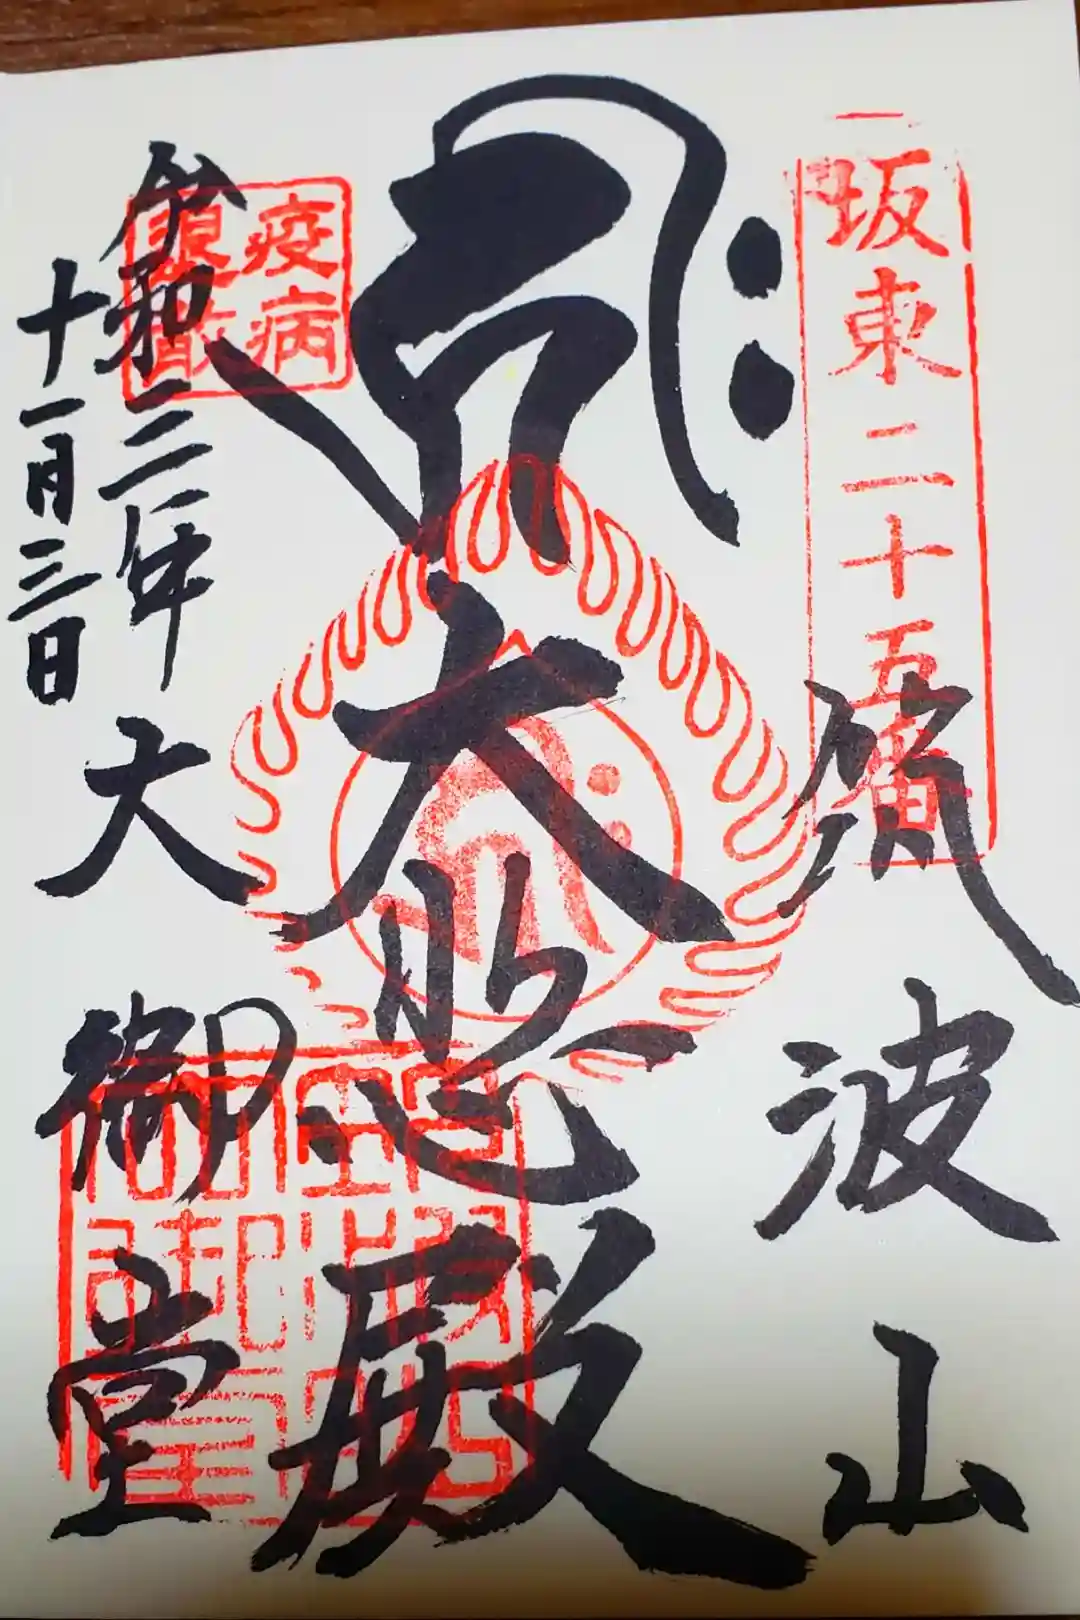 坂東二十五番
筑波山
大悲殿
疫病
令和二年
十一月三日
大御堂